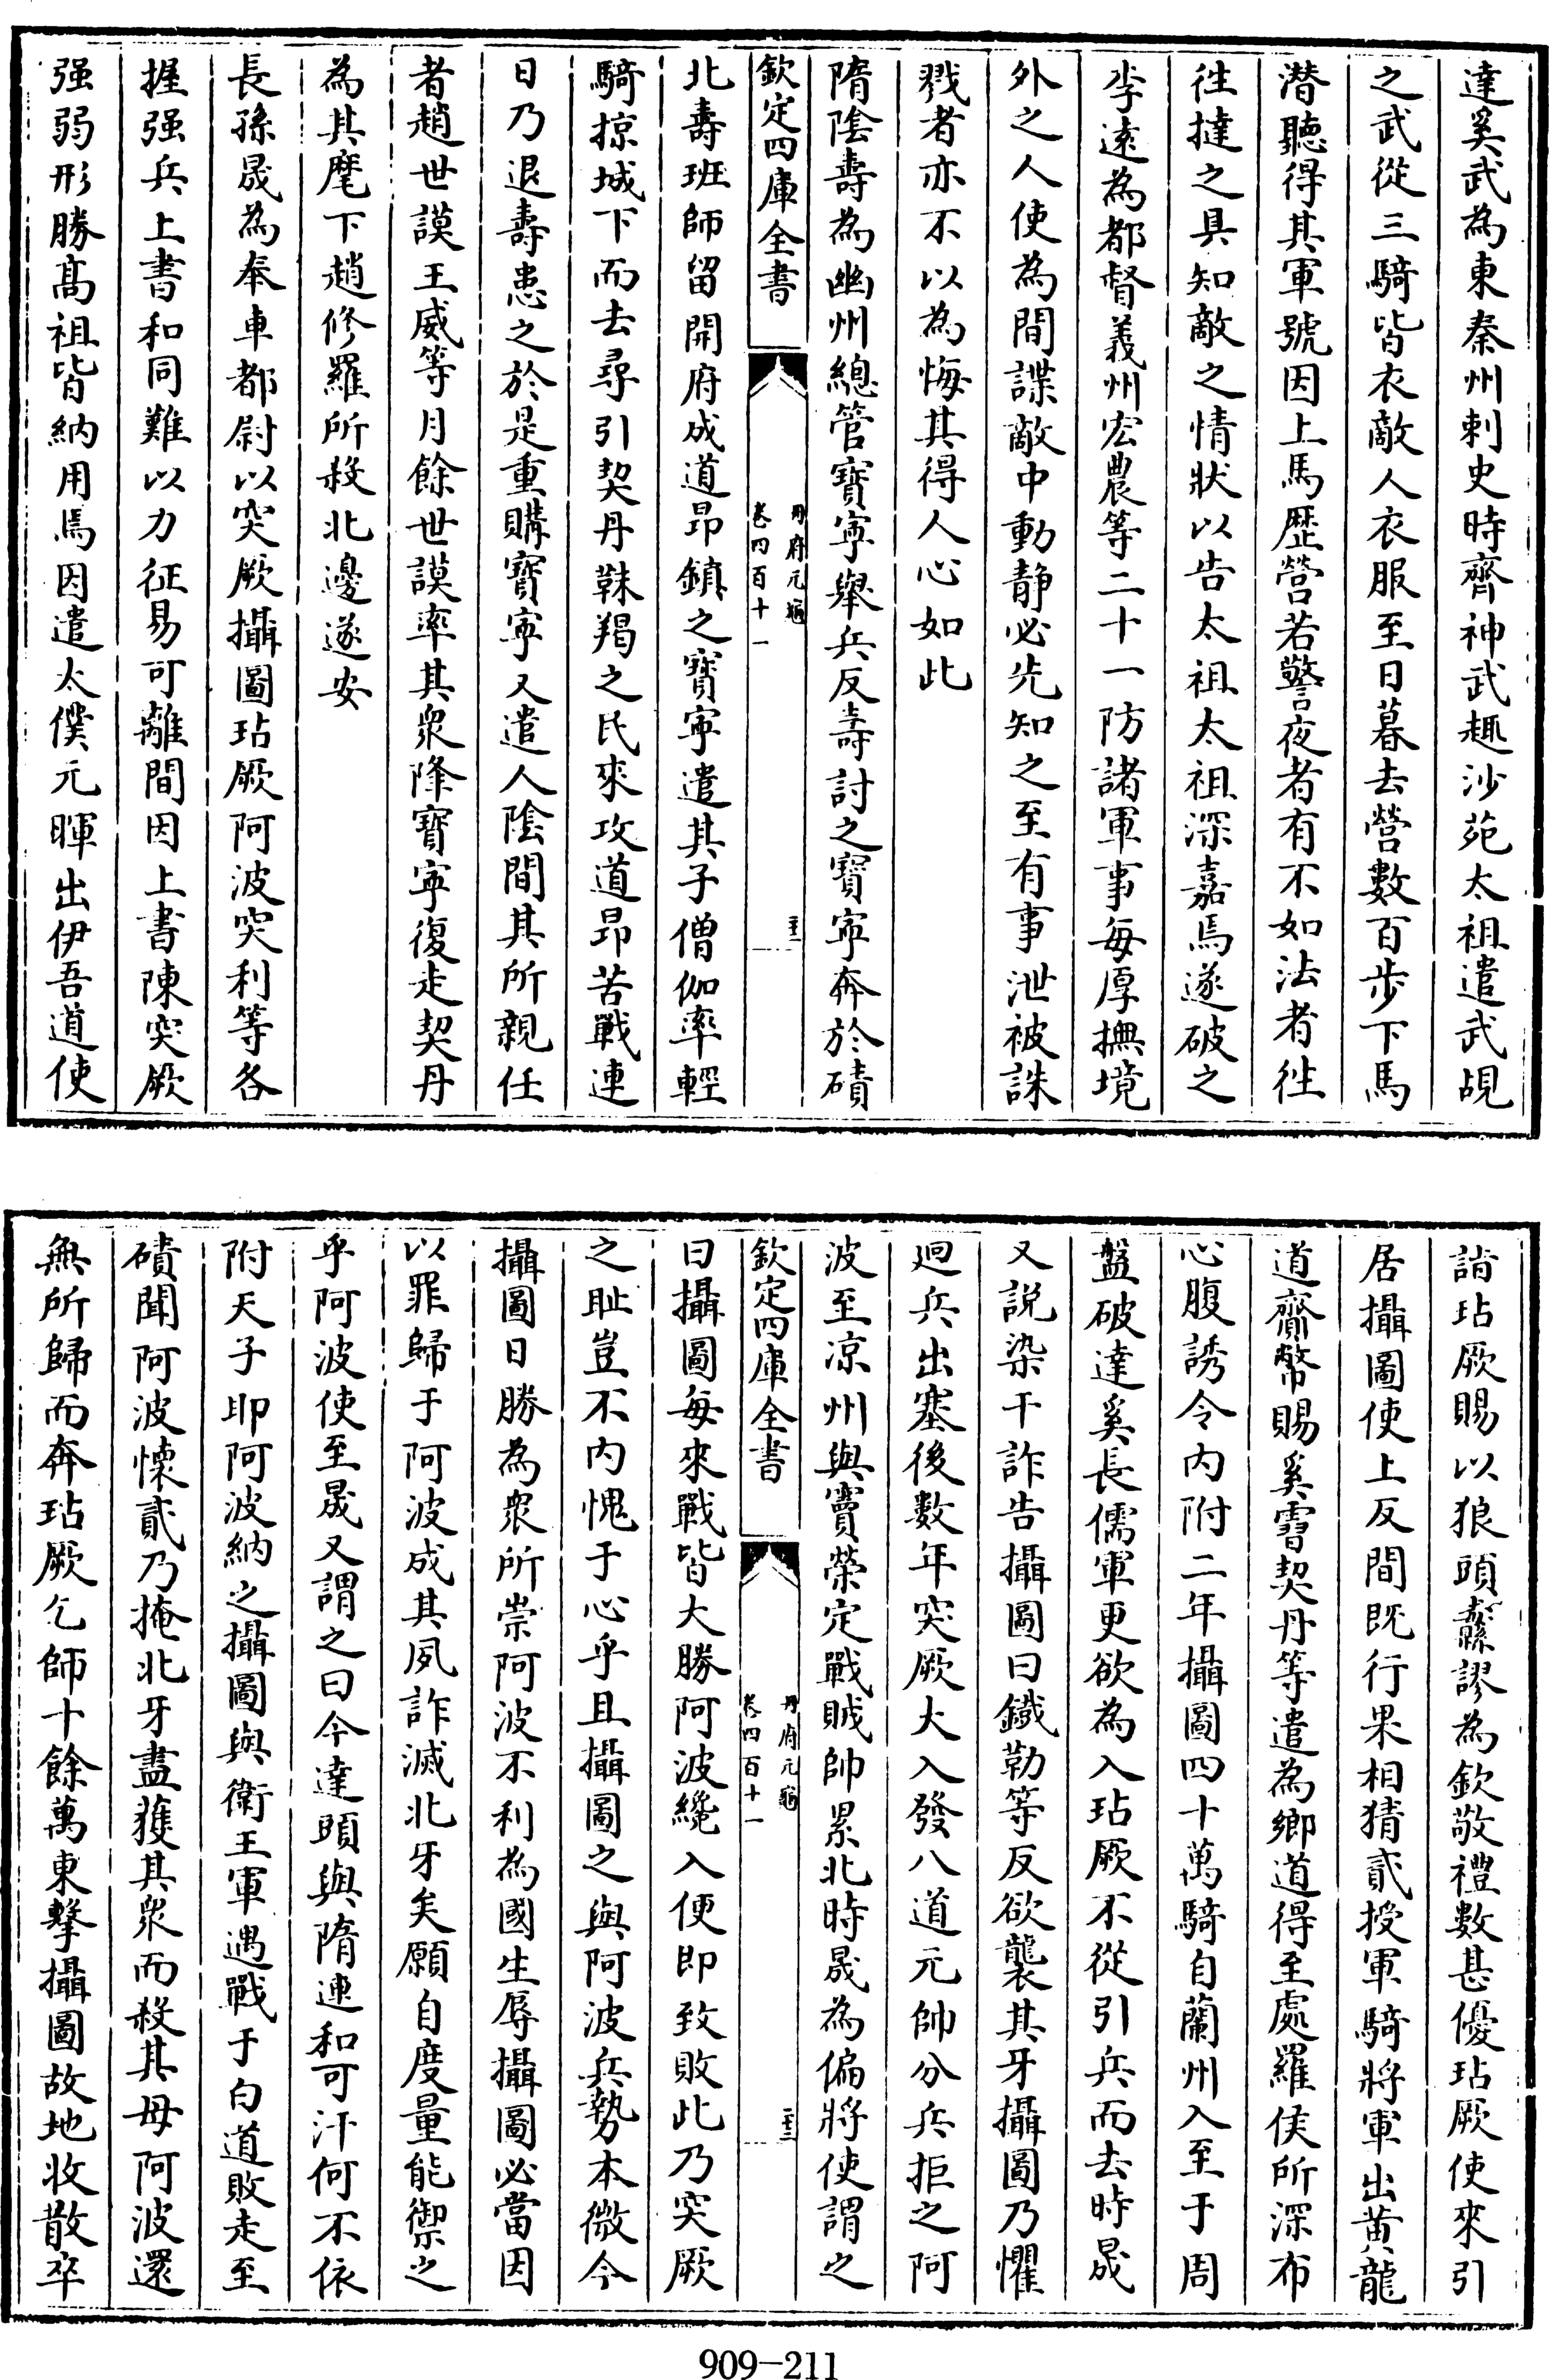 達奚武為東秦州刺史時齊神武趣沙苑太祖遣武覘
之武從三騎皆衣敵人衣服至日暮去營數百步下馬
潜聽得其軍號因上馬歴營若警夜者有不如法者徃
徃撻之具知敵之情狀以告太祖太祖深嘉焉遂破之
李遠為都督義州宏農等二十一防諸軍事每厚撫境
外之人使為間諜敵中動静必先知之至有事泄被誅
戮者亦不以為悔其得人心如此
隋陰壽為幽州總管寶寧舉兵反壽討之寶寧奔於磧
欽定四庫全書
冊府元龜
卷四百十一
二十二
北壽班師留開府成道昻鎮之寶寧遣其子僧伽率輕
騎掠城下而去尋引契丹靺羯之民來攻道昻苦戰連
日乃退壽患之於是重購寶寧又遣人陰間其所親任
者趙世謨王威等月餘世謨率其衆降寶寧復走契丹
為其麾下趙修羅所殺北邊遂安
長孫晟為奉車都尉以突厥攝圖玷厥阿波突利等各
握强兵上書和同難以力征易可離間因上書陳突厥
强弱形勝髙祖皆納用焉因遣太僕元暉出伊吾道使
詣玷厥賜以狼頭纛謬為欽敬禮數甚優玷厥使來引
居攝圖使上反間既行果相猜貳授軍騎將軍出黄龍
道齎幣賜奚霫契丹等遣為鄉道得至處羅侯所深布
心腹誘令内附二年攝圖四十萬騎自蘭州入至于周
盤破達奚長儒軍更欲為入玷厥不從引兵而去時晟
又説染干詐告攝圖曰鐵勒等反欲襲其牙攝圖乃懼
廻兵出塞後數年突厥大入發八道元帥分兵拒之阿
波至凉州與竇榮定戰賊帥累北時晟為偏將使謂之
欽定四庫全書
冊府元龜
卷四百十一
二十三
曰攝圖每來戰皆大勝阿波纔入便即致敗此乃突厥
之耻豈不内愧于心乎且攝圖之與阿波兵勢本微今
攝圖日勝為衆所崇阿波不利為國生辱攝圖必當因
以罪歸于阿波成其夙詐滅北牙矣願自度量能禦之
乎阿波使至晟又謂之曰今達頭與隋連和可汗何不依
附天子耶阿波納之攝圖與衛王軍遇戰于白道敗走至
磧聞阿波懷貳乃掩北牙盡獲其衆而殺其母阿波還
無所歸而奔玷厥乞師十餘萬東擊攝圖故地收散卒
909-211